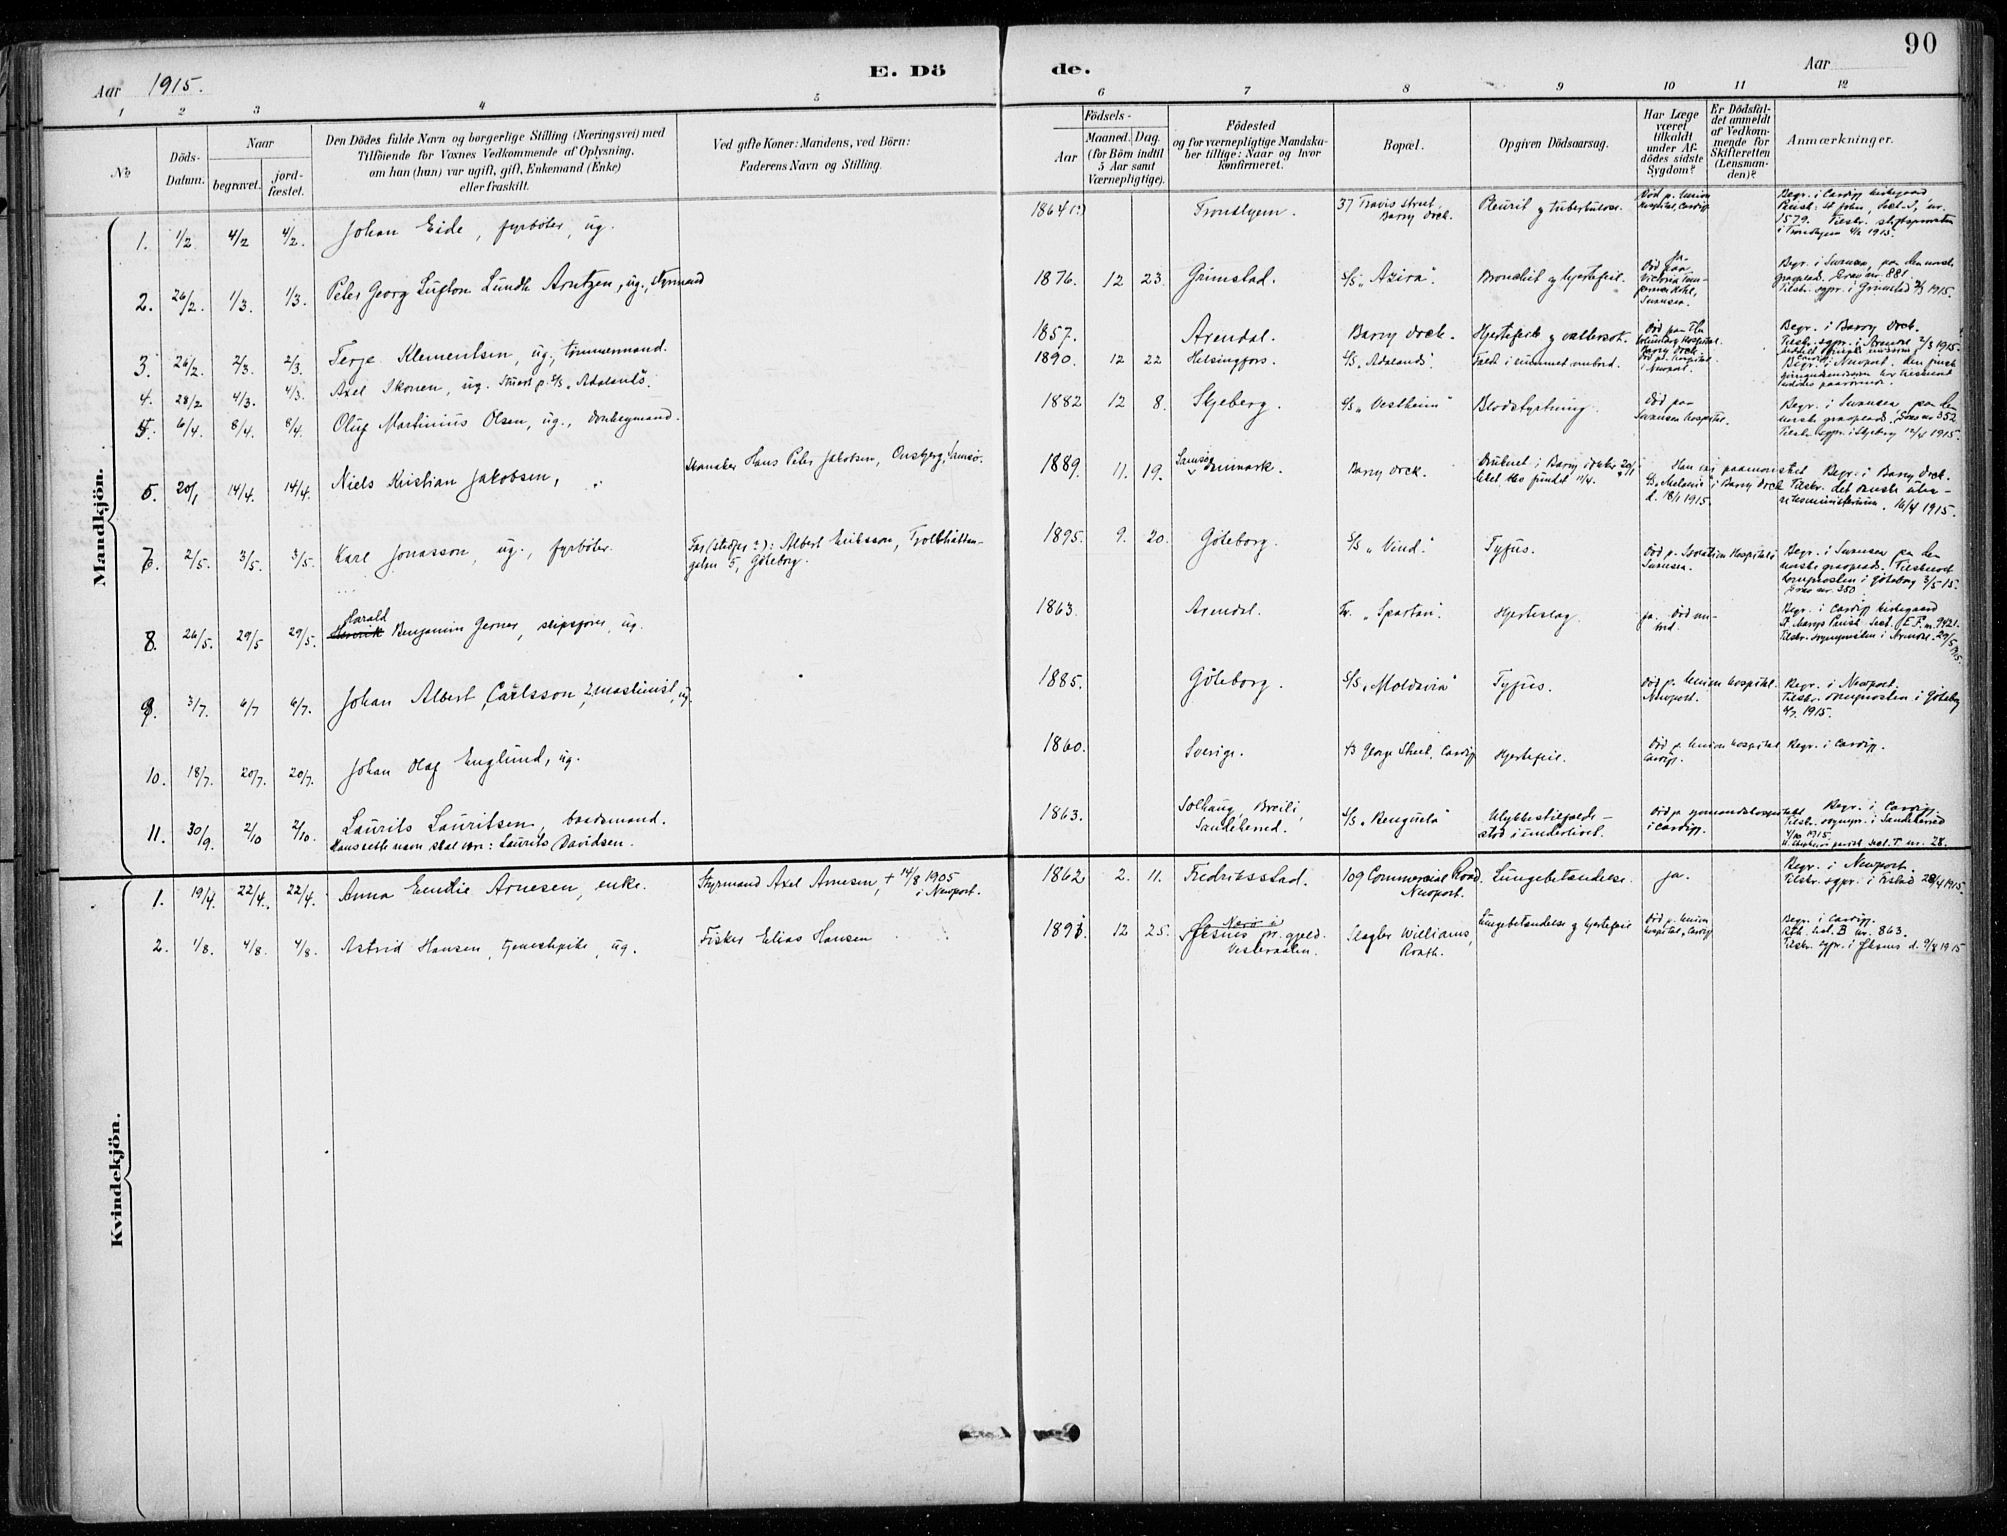 90
Aar 1915.
E. Dö
de.
Aar
1 2 3 4 5
6 7 8 9 10 11 12
No
Döds-Datum.
Naar
begravet.
jord-fæstet.
Den Dödes fulde Navn og borgerlige Stilling (Næringsvei) med
Tilföiende for Voxnes Vedkommende af Oplysning,
om han (hun) var ugift, gift, Enkemand (Enke)
eller fraskilt.
Ved gifte Koner: Mandens, ved Börn:
Faderens Navn og Stilling.
Födsels-
Aar
Maaned. Dag.
(for Börn indtil
5 Aar samt
Værnepligtige).
Födested
og for værnepligtige Mandska-
ber tillige: Naar og hvor
konfirmeret.
Bopæl.
Opgiven Dödsaarsag.
Har Læge
været
tilkaldt
under Af-
dödes sidste
Sygdom?
Er Dödsfal-
det anmeldt
af Vedkom-
mende for
Skifteretten
(Lensman-
den)?
Anmærkninger.
Mandkjön.
1. 1/2 4/2 4/2. Johan Eide, fyrböter, ug. 1864(?) Trondhjem. 37 Travis street, Barry Dock. Pleurit og tuberkulose. Död p. Union Hospital, Cardiff. Begr. i Cardiff kirkegaard
1579. Tilskr. stiftsprovsten
i Trondhjem 4/2 1915.
2. 26/2. 1/3. 1/3. Peter Georg Lund Arntzen, ug., styrmand 1876. 12 23. Grimstad. S/S "Azira". Bronchit og hjertefeil. Ja. Död paa Victoria Swansea. Begr. i Swansea, paa den norske
gravplads. Grav nr. 881.
Tilskr. sgpr. i Grimstad 2/3 1915.
3. 26/2. 2/3. 2/3. Terje Klementsen, ug., tømmermand. 1857. Arendal. Barry Dock. Hjertefeil og Död paa Hospital. Barry Dock Begr. i Barry Dock.
Tilskr. sgpr. i Arendal 2/3 1915.
4. 28/2 4/3. 4/3. Axel Skonen, ug. Stuert p. S/S "Adalands". 1890. 12 22 Helsingfors. S/S "Adalands". Faldt i rummet ombord. Död p. hospital i Newport. Begr. i Newport. den finske
5. 6/4. 8/4. 8/4. Oluf Martinius Olsen, ug., donkeymand. 1882 12 8. Skjeberg. S/S "Vestheim" Blodstyrtning. Död paa Swansea hospital. Begr. i Swansea paa den
norske gravplads. Grav nr 352
Tilskr. sgpr. i Skjeberg 12/4 1915.
6. 20/1 14/4. 14/4. Niels Kristian Jakobsen, Hans Peter Jakobsen, Onsbjerg, Samsø. 1889. 11. 19. Samsø Danmark. Barry Dock. Druknet i Barry Dock 20/1 fundet 11/4. Han paamönstret S/S "Melanie" i Barry Dock d. 18/1 1915. Begr. i Barry Dock.
Tilskr. det danske 16/4 1915.
7. 2/5. 3/5. 3/5. Karl Jonasson, ug., fyrböter. Far (stedfar?): Albert Eriksson, Trollhättan-
gatan 5, Göteborg. 1895. 9. 20. Göteborg. S/S "Vind". Tyfus. Död p. Isolation Hospital, Swansea. Begr. i Swansea paa den
norske gravplads. Tilskrevet
domprosten i Göteborg 3/5 15.
Grav nr. 350.
8. 26/5. 29/5 29/5. Harald Henrik Benjamin Gerner, skipsförer, ug. 1863. Arendal. "Spartan". Hjerteslag ja. Död Begr. i Cardiff kirkegaard
St. Marys Parish Sect. E.F. nr. 9421.
Tilskr. sogneprästen i Arendal. 29/5 1915.
9. 3/7. 6/7 6/7. Johan Albert Carlsson, 2. maskinist, ug. 1885. Göteborg. S/S "Moldavia" Tyfus. Död p. Union hospital. Newport. Begr. i Newport.
Tilskr. domprosten i Göteborg
6/7. 1915.
10. 18/7. 20/7. 20/7. Johan Olaf Englund, ug. 1860. Sverige. 43 George Street, Cardiff Hjertefeil. Död p. Union hospital Cardiff. Begr. i Cardiff.
11. 30/9. 2/10 2/10. Laurits Lauritsen, baadsmand.
Hans rette navn skal være: Laurits Davidsen. 1863. Solhaug, Breili, Sandeherred. S/S "Benguela" Ulykkestilfælde - stöd i underlivet. Död p. sømandshospitalet i Cardiff. Begr. i Cardiff.
Tilskr. sognpr. i Sandeherred
4/10 1915.
Sect. T. nr. 28.
Kvindekjön.
1. 19/4. 22/4. 22/4. Anna Emilie Arnesen, enke. Styrmand Axel Arnesen, + 14/8 1905
i Newport. 1862 2. 11. Fredriksstad. 109 Commercial Road, Newport. Lungebetændelse. ja. Begr. i Newport.
Tilskr. sgpr. i Fr.stad 28/4 1915.
2. 1/8. 4/8. 4/8. Astrid Hansen, tjenestepike, ug. Fisker Elias Hansen 12 25. Øksnes pr.gjeld. Vesteraalen. Slagter Williams, Roath. Lungebetændelse og hjertefeil Död p. Union hospital, Cardiff Begr. i Cardiff.
B nr. 863.
Tilskr. sgpr. i Øksnes d. 9/8 1915